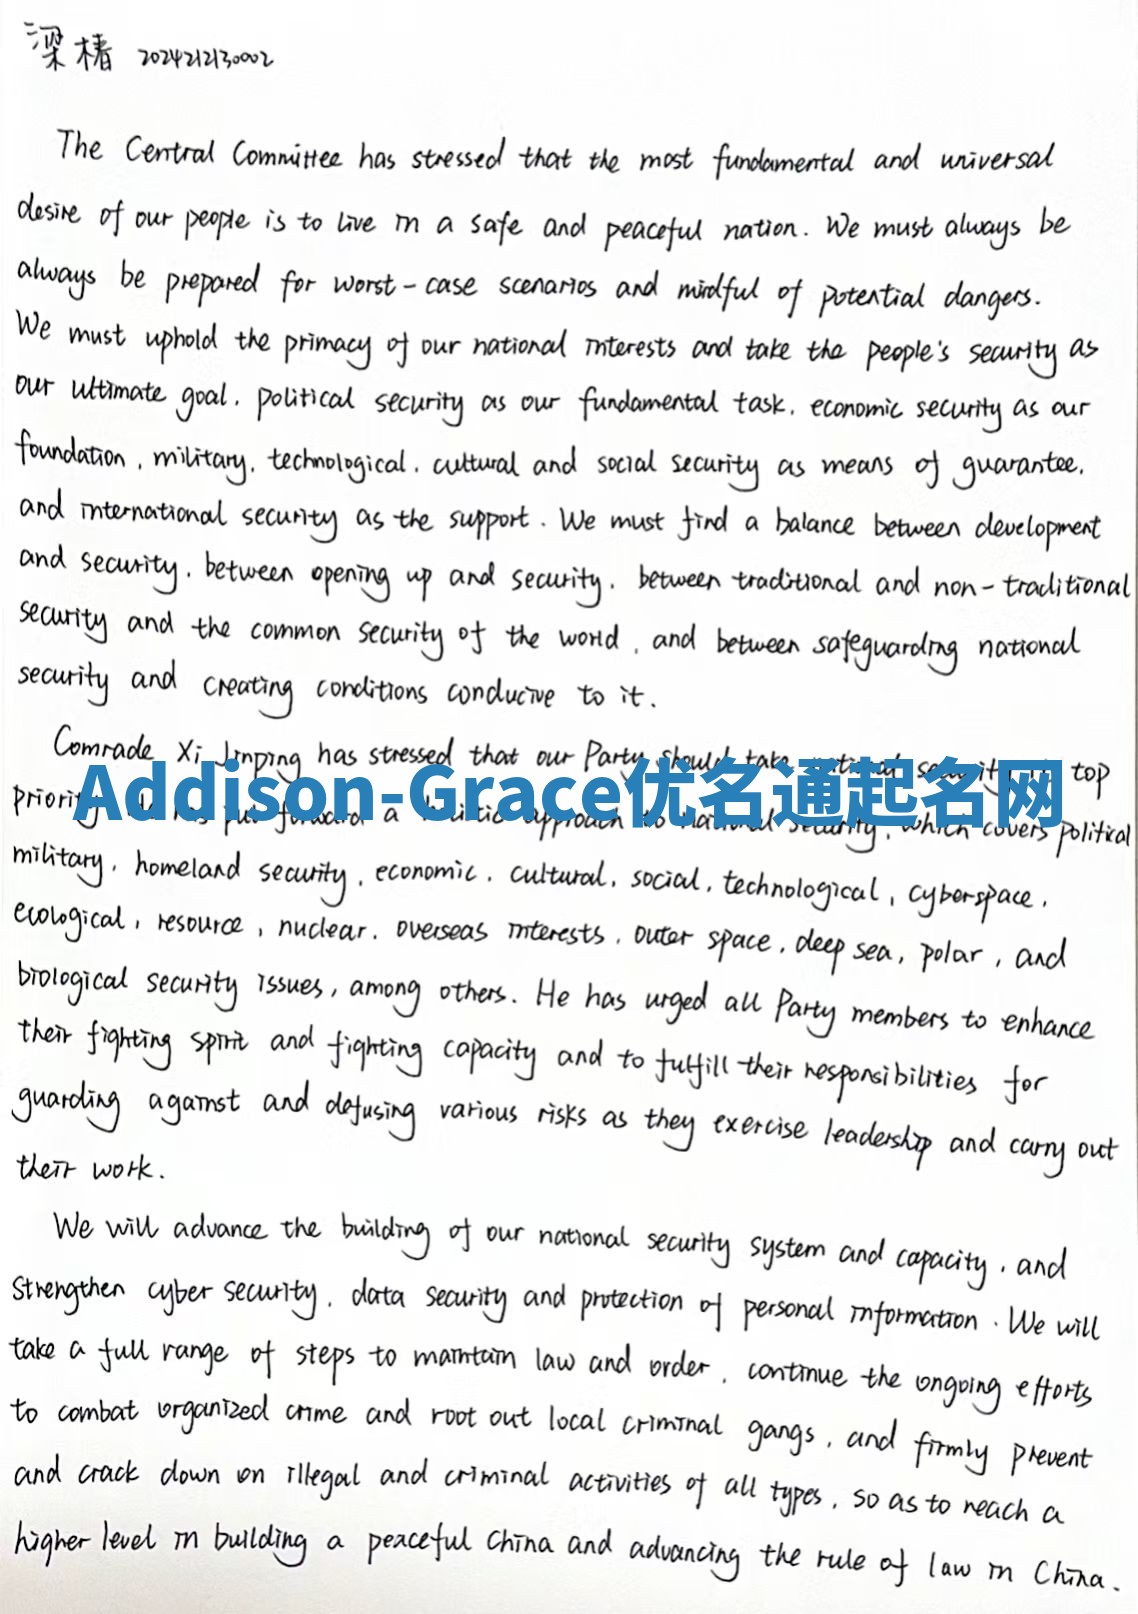 梁椿 2024212130002
The Central Committee has stressed that the most fundamental and universal
desire of our people is to live in a safe and peaceful nation. We must always be
always be prepared for worst-case scenarios and mindful of potential dangers.
We must uphold the primacy of our national interests and take the people's security as
our ultimate goal, political security as our fundamental task, economic security as our
foundation, military, technological, cultural and social security as means of guarantee,
and international security as the support. We must find a balance between development
and security, between opening up and security, between traditional and non-traditional
security and the common security of the world, and between safeguarding national
security and creating conditions conducive to it.
Comrade Xi Jinping has stressed that our Party should take national security top
Addison-Grace优名通起名网
priority put forward a holistic approach to national security, which covers political
military, homeland security, economic, cultural, social, technological, cyberspace,
ecological, resource, nuclear, overseas interests, outer space, deep sea, polar, and
biological security issues, among others. He has urged all Party members to enhance
their fighting spirit and fighting capacity and to fulfill their responsibilities for
guarding against and defusing various risks as they exercise leadership and carry out
their work.
We will advance the building of our national security system and capacity, and
strengthen cyber security, data security and protection of personal information. We will
take a full range of steps to maintain law and order, continue the ongoing efforts
to combat organized crime and root out local criminal gangs, and firmly prevent
and crack down on illegal and criminal activities of all types, so as to reach a
higher level in building a peaceful China and advancing the rule of law in China.